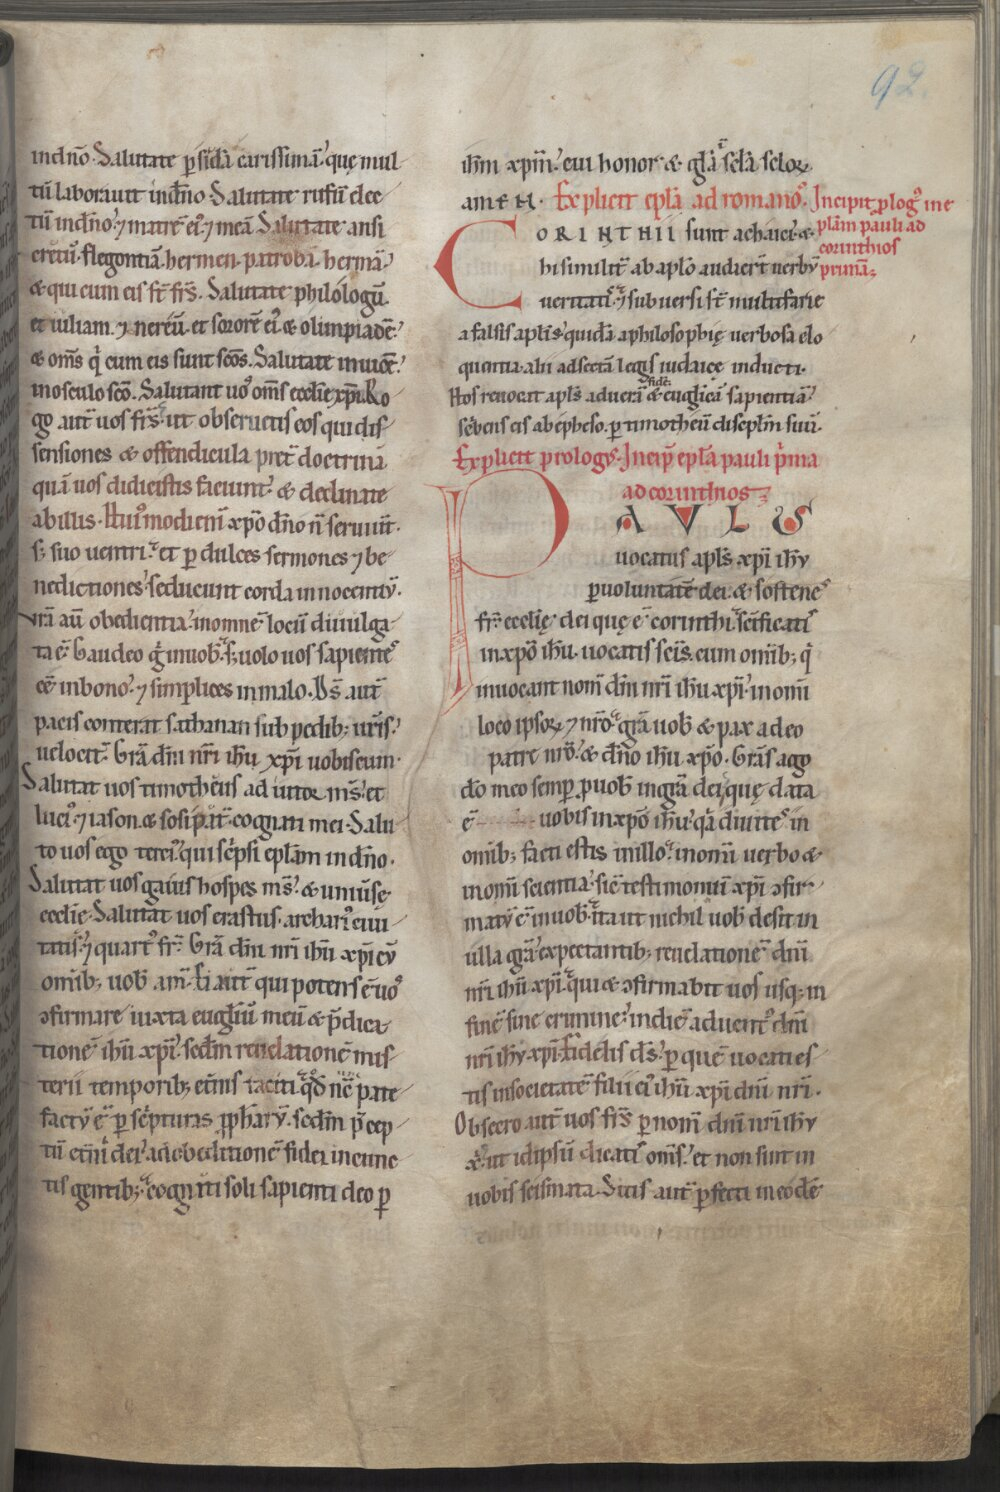 92.
in dño. Salutate ꝑsidā carissimā. quę mul
tū laborauit in dño. Salutate rufū elec
tū in dño. ⁊ matrē ei᷒ ⁊ meā. Salutate asin
cretū. flegontiā. hermen. patrobā. hermā.
& qui cum eis st̄ frs̄. Salutate philologū.
et iuliam. ⁊ nereū. et sororē ei᷒ & olimpiadē.
& om̄s q̇ cum eis sunt scōs. Salutate inuicē.
in osculo scō. Salutant uos om̄s ecclie xp̄i. Ro
go aut̄ uos frs̄. ut obseruetis eos qui dis
sensiones & offendicula pret̄ doctrinā
quā uos didicistis faciunt. & declinate
ab illis. Huiusmodi eni xp̄o dño n̄ seruiūt.
s; suo uentri. et ꝑ dulces sermones ⁊ be
nedictiones seducunt corda innocentiū.
Vr̄a aū obedientia. in omnē locū diuulga
ta ē. Gaudeo ḡ in uob̄. s; uolo uos sapientes
eē in bono. ⁊ simplices in malo. Ds̄ aut̄
pacis conterat sathanan sub pedib; ur̄is.
uelocit̄. Grā dn̄i nr̄i ihū xp̄i uobiscum.
Salutat uos timotheus adiutor ms̄. et
luci᷒ ⁊ iason. & sosipat̄ cognati mei. Salu
to uos ego terci᷒. qui sc̄psi epłam in dño.
Salutat uos gaius hospes ms̄. & uniuersę
ecclie. Salutat uos erastus. archari᷒ ciui
tatis. ⁊ quart᷒ fr̄. Grā dn̄i nr̄i ihū xp̄i cū
omib; uob̄ am̄. Ei aut̄ qui potens ē uos
ↄfirmare iuxta eugłiū meū & p̄dica
tionē ihū xp̄i. scdm reuelationē mis
terii temporib; etnis taciti. qd̄ nc̄ pate
factū ē ꝑ sc̄pturas ꝓphārū. scdm p̄cep
tū etn̄i dei. ad obeditionē fidei in cunc
tis gentib; cogniti soli sapienti deo ꝑ
ihm xp̄m. cui honor & głā scłā scłoꝝ
amen. Explicit epłā ad romanos. Incipit ꝓlog᷒ in e
CORINTHII sunt achaici. & płam pauli ad
hi similit̄ ab apło audier̄t uerbū corinthios
ueritatis. ⁊ subuersi st̄ multifarie primā;
a falsis apłis. quidā a philosophię uerbosa elo
quentia. alii ad sectā legis iudaice inducti.
fidē
Hos reuocat apłs ad uerā & eugłicā sapientiā.
sc̄bens eis ab epheso. ꝑ timotheū discipłm suū.
Explicit prologus. Incip̄ epłā pauli p̄ma
ad corinthios;
PAVLUS
uocatus apłs xp̄i ihū
ꝑ uoluntatē dei. & sostenes
fr̄. ecclię dei quę ē corinthi. sc̄ificatis
in xp̄o ihū. uocatis scīs. cum omib; q̇
inuocant nom̄ dn̄i nr̄i ihū xp̄i. in omi
loco ipsoꝝ ⁊ nr̄o. grā uob̄ & pax a deo
patre nr̄o & dño ihū xp̄o. Grās ago
dō meo semꝑ ꝓ uob̄ in grā dei. quę data
ē uobis in xp̄o ihū. q̄a diuites in
omib; facti estis in illo. in omi uerbo &
in omi scientia. sic̄ testimoniū xp̄i ↄfir
matū ē in uob̄. ita ut nichil uob̄ desit in
ulla grā. expectantib; reuelationē dn̄i
nr̄i ihū xp̄i. qui & ↄfirmabit uos usq; in
finē sine crimine. in die aduent᷒ dn̄i
nr̄i ihū xp̄i. Fidelis ds̄. ꝑ quē uocati es
tis in societatē filii ei᷒ ihū xp̄i dn̄i nr̄i.
Obsecro aut̄ uos frs̄ ꝑ nom̄ dn̄i nr̄i ihū
xp̄i. ut idipsū dicatis om̄s. et non sint in
uobis scismata. Sitis aut̄ ꝑfecti in eodē